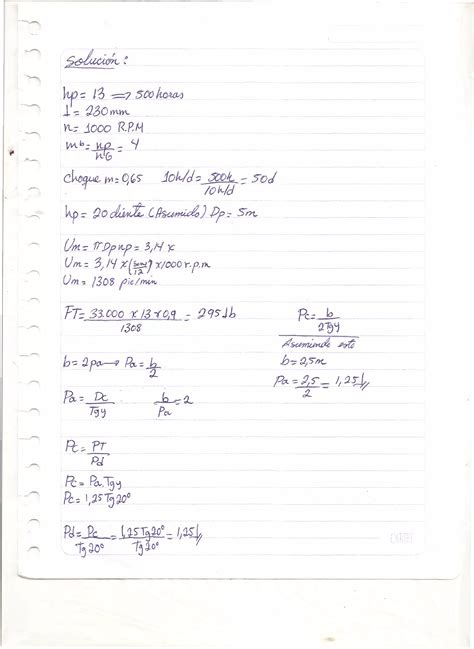 Solución:
hp = 13 => 500 horas
I = 230 mm
n = 1000 R.P.M
mb = np/nG = 4
choque m = 0,65 10h/d = 500h/10h/d = 50d
hp = 20 diente (Asumido) Dp = 5m
Um = πDpnp = 3,14 x
Um = 3,14 x ( /12) x 1000 r.p.m
Um = 1308 pie/min
FT = 33.000 x 13 x 0,9/1308 = 295 lb
Pc = b/2Tgy
Asumiendo este
b = 2,5m
Pa = 2,5/2 = 1,25
b = 2pa → Pa = b/2
Pa = Dc/Tgy b/Pa = 2
Pc = PT/Pd
Pc = Pa.Tgy
Pc = 1,25 Tg20°
Pd = Pc/Tg20° = 1,25Tg20°/Tg20° = 1,25